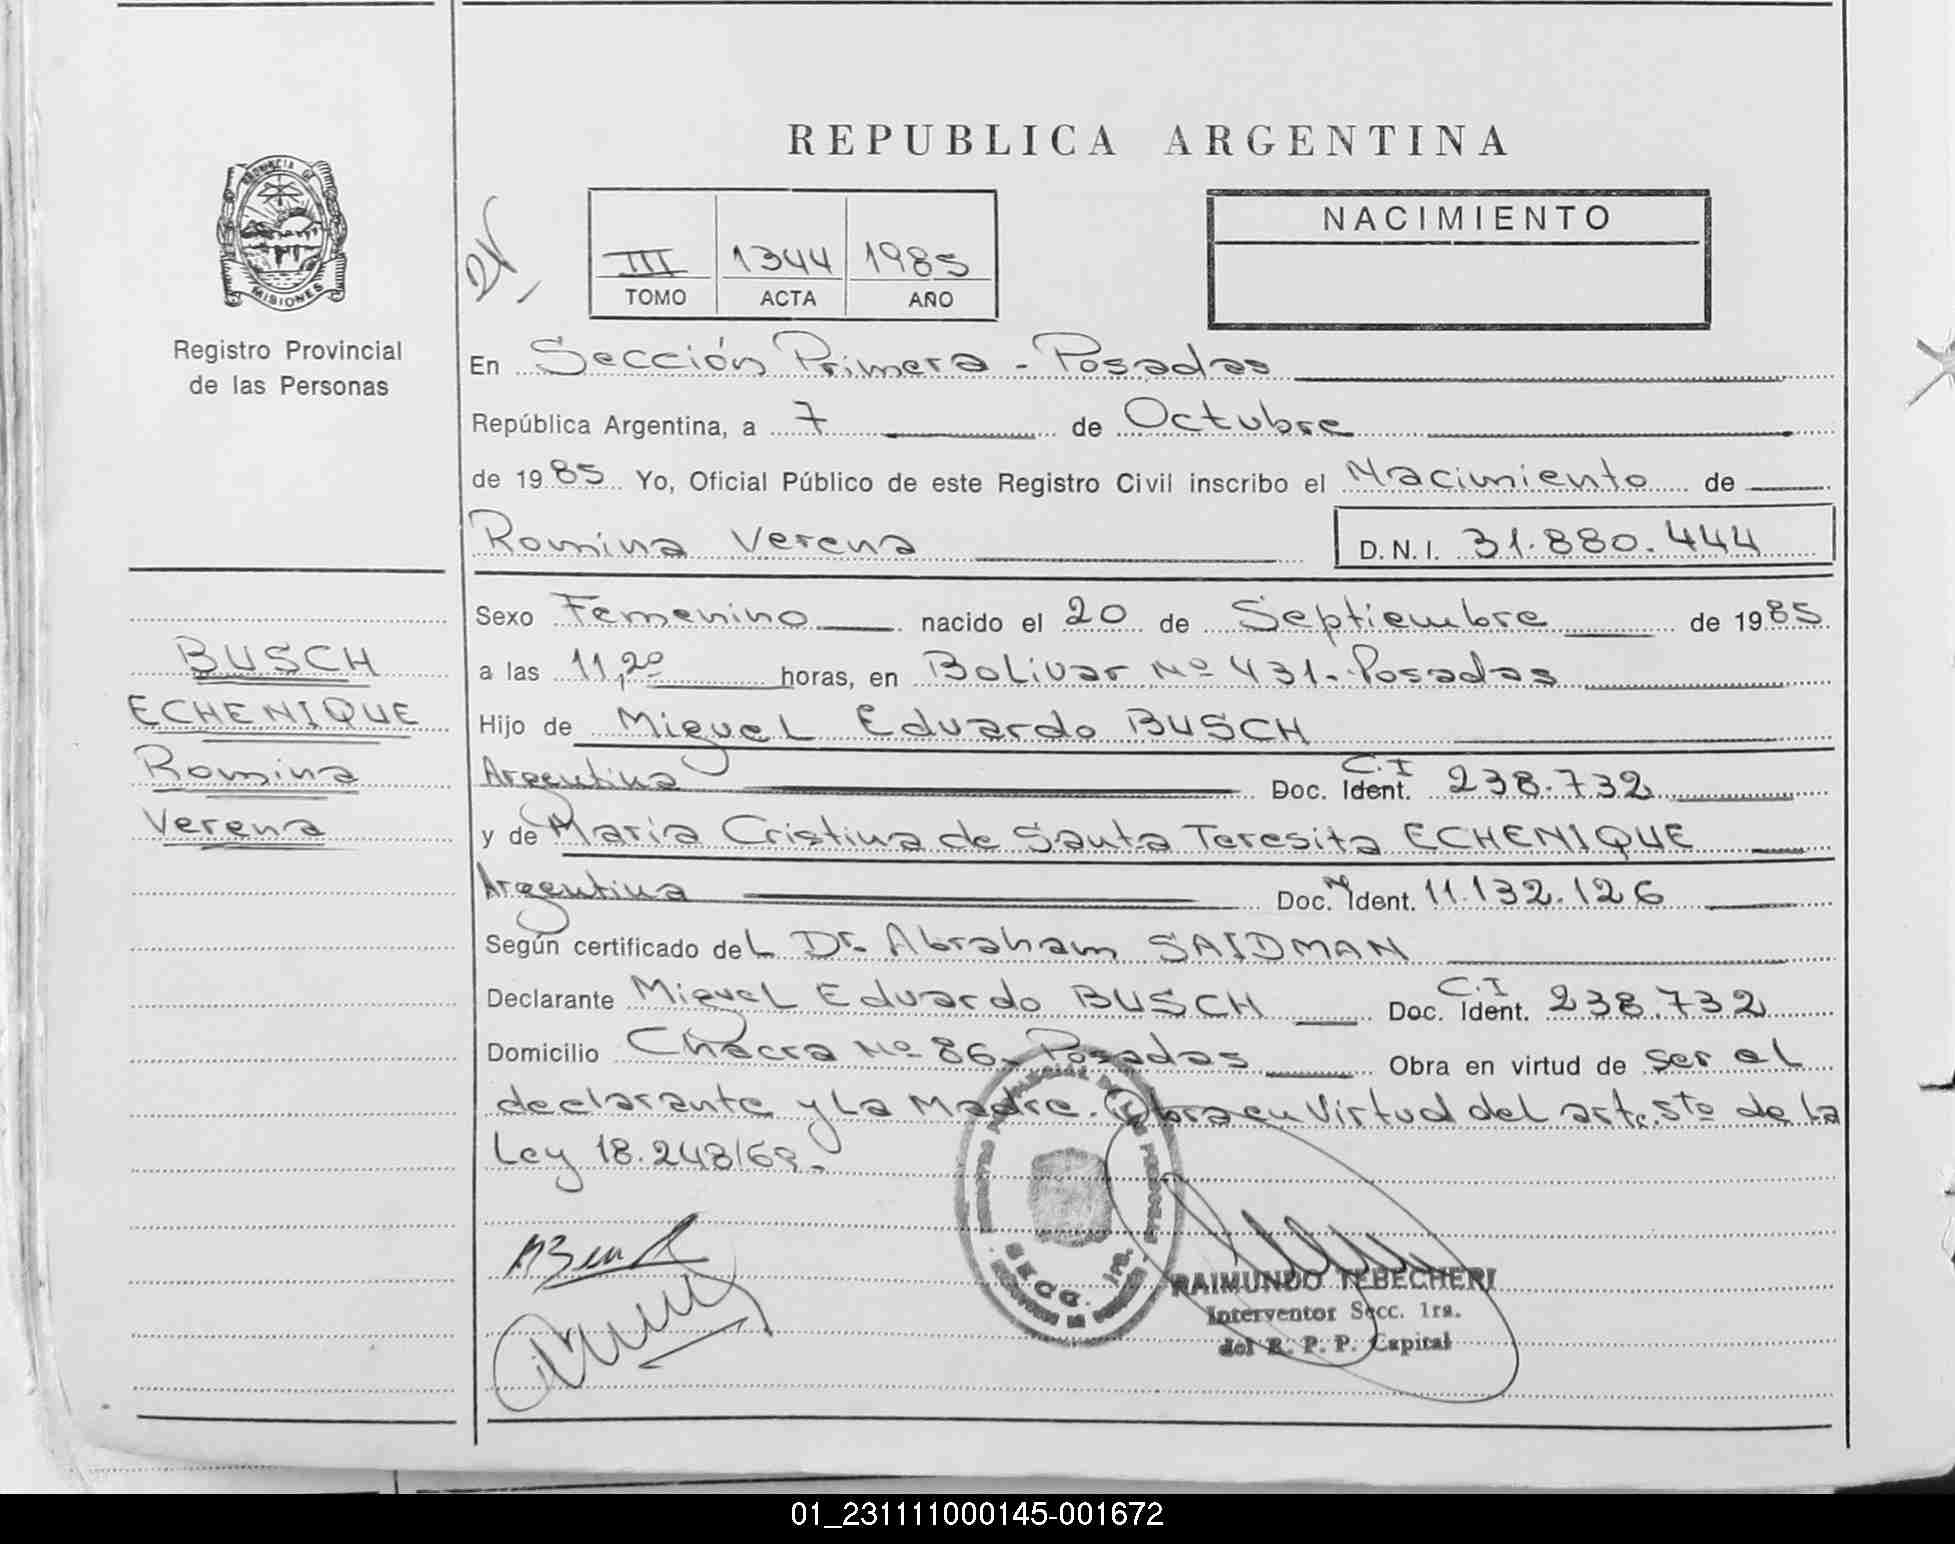 REPUBLICA ARGENTINA
PROVINCIA DE
MISIONES
Registro Provincial
de las Personas
III 1344 1985
TOMO ACTA AÑO
NACIMIENTO
En Sección Primera - Posadas
República Argentina, a 7 de Octubre
de 1985 Yo, Oficial Público de este Registro Civil inscribo el Nacimiento de
Romina Verena D.N.I. 31.880.444
BUSCH
ECHENIQUE
Romina
Verena
Sexo Femenino nacido el 20 de Septiembre de 1985
a las 11,20 horas, en Bolivar Nº 431 - Posadas
Hijo de Miguel Eduardo BUSCH
Argentina Doc. Ident. C.I 238.732
y de María Cristina de Santa Teresita ECHENIQUE
Argentina Doc. Ident. 11.132.126
Según certificado del Dr. Abraham SAIDMAN
Declarante Miguel Eduardo BUSCH Doc. Ident. C.I 238.732
Domicilio Chacra Nº 86 - Posadas Obra en virtud de ser el
declarante y la Madre. Obra en Virtud del art. 5to de la
Ley 18.248/69.
SECC. 1ra.
RAIMUNDO TEBECHERI
Interventor Secc. 1ra.
del R. P. P. Capital
01_231111000145-001672